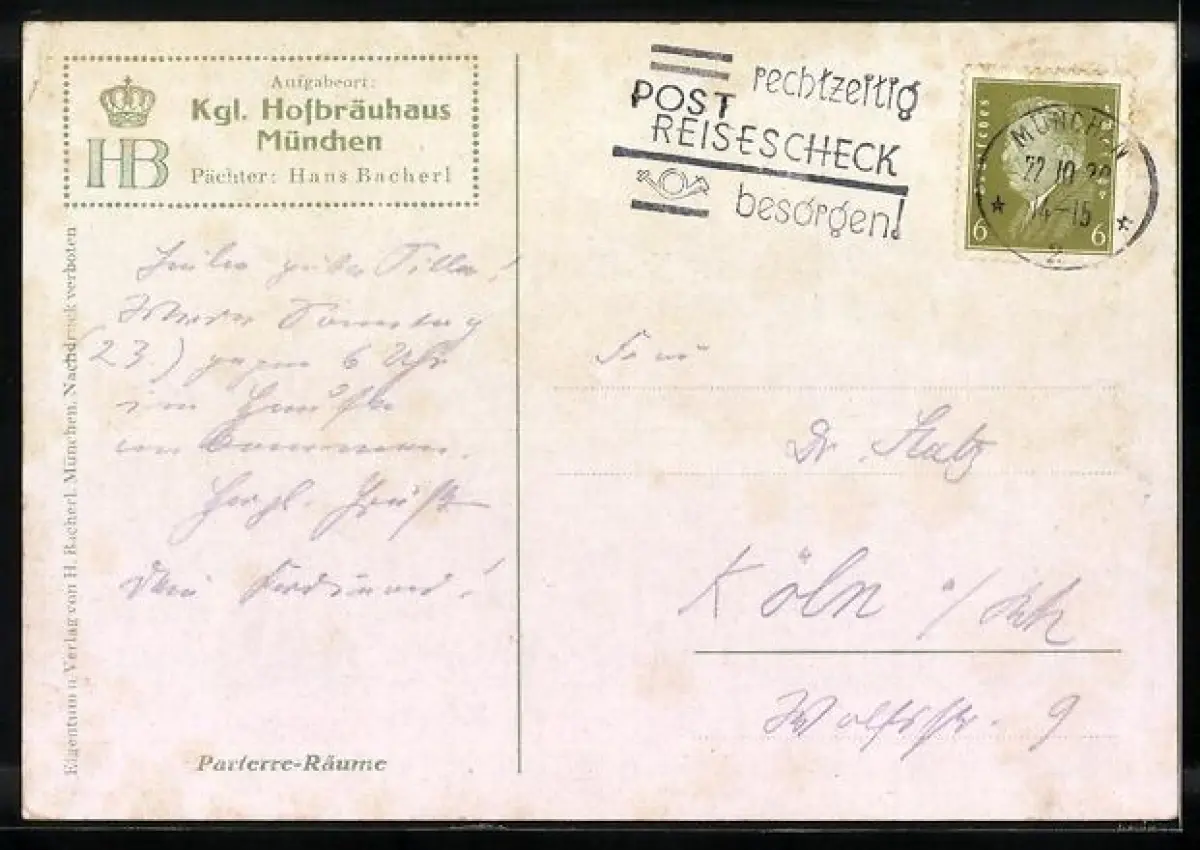 Aufgabeort:
Kgl. Hofbräuhaus
München
HB
Pächter: Hans Bacherl
Eigentum u. Verlag von H. Bacherl, München. Nachdruck verboten
rechtzeitig
POST
REISESCHECK
besorgen!
MÜNCHEN
22.10.
14-15
2.
6 6
Tilla!
Sonntag
(23.) gegen 6 Uhr
im
Herzl. Gruß
Dein Ferdinand!
Parterre-Räume
Frau
Dr. Statz
Köln a/Rh
Wolfsstr. 9